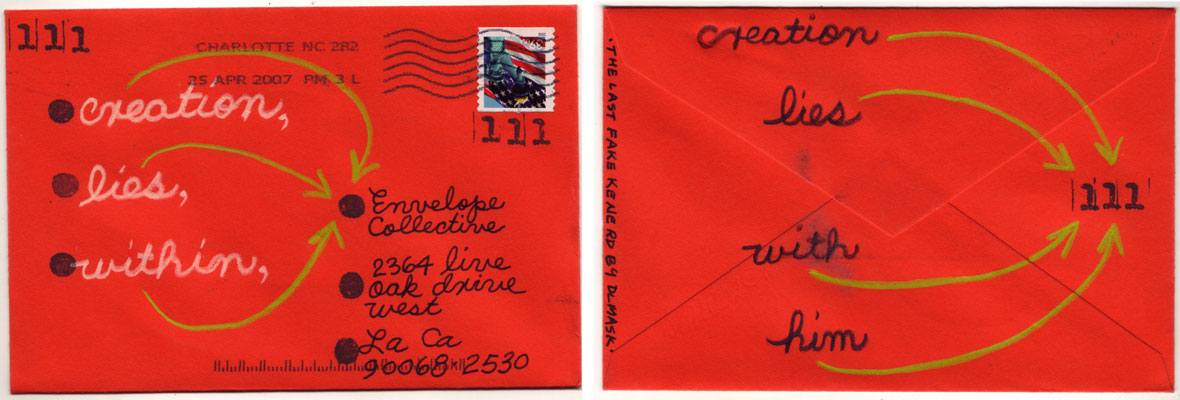 111
CHARLOTTE NC 282
25 APR 2007 PM 3 L
111
creation,
lies,
within,
Envelope
Collective
2364 live
oak drive
west
La Ca
90068-2530
creation
lies
111
with
him
·THE LAST FAKE KENERD BY DLMASK·